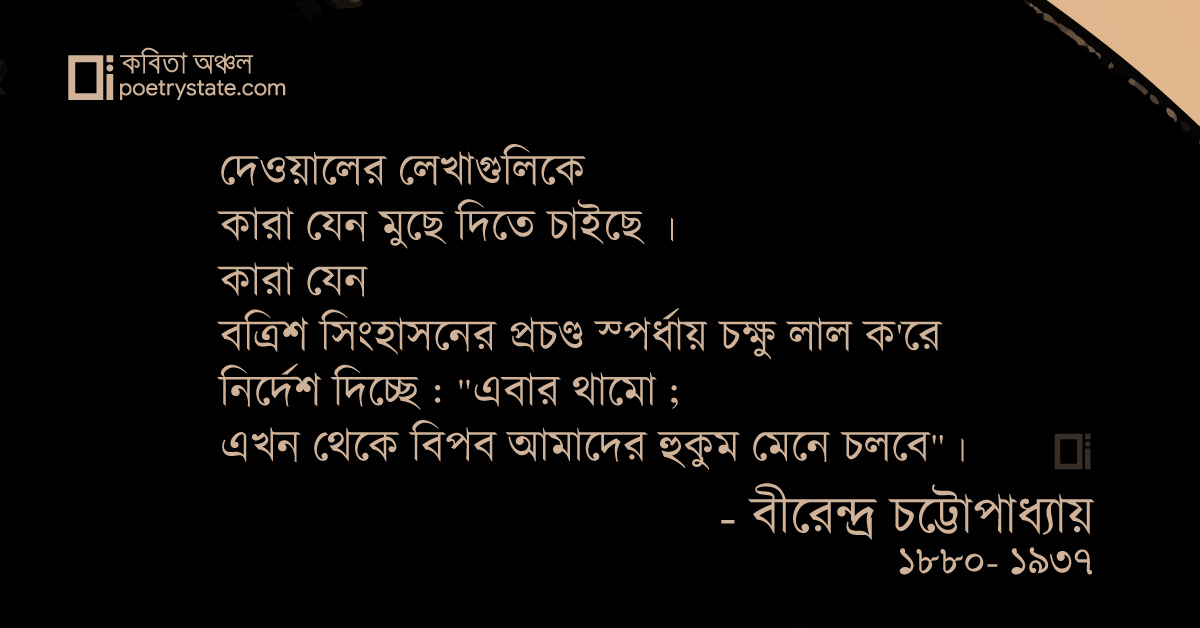 কবিতা অঞ্চল
poetrystate.com
দেওয়ালের লেখাগুলিকে
কারা যেন মুছে দিতে চাইছে ।
কারা যেন
বত্রিশ সিংহাসনের প্রচণ্ড স্পর্ধায় চক্ষু লাল ক'রে
নির্দেশ দিচ্ছে : "এবার থামো ;
এখন থেকে বিপব আমাদের হুকুম মেনে চলবে" ।
- বীরেন্দ্র চট্টোপাধ্যায়
১৮৮০- ১৯৩৭